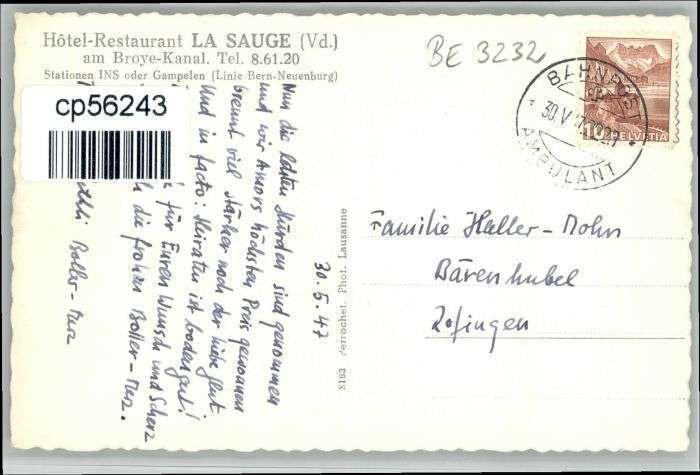 Hôtel-Restaurant LA SAUGE (Vd.)
am Broye-Kanal. Tel. 8.61.20
Stationen INS oder Gampelen (Linie Bern-Neuenburg)
BE 3232
BAHNPOST
30.V
AMBULANT
10 HELVETIA
cp56243
30.5.47
Nun die letzten Hürden sind genommen
und wir Amors höchsten Preis gewonnen
brennt viel stärker noch der Liebe Glut
Und in facto: Heiraten ist bodengut!
für Euren Wunsch und Scherz
die frohen Boller-Merz.
Boller-Merz
8193 Perrochet. Phot. Lausanne
Familie Haller-Mohn
Bärenhubel
Zofingen